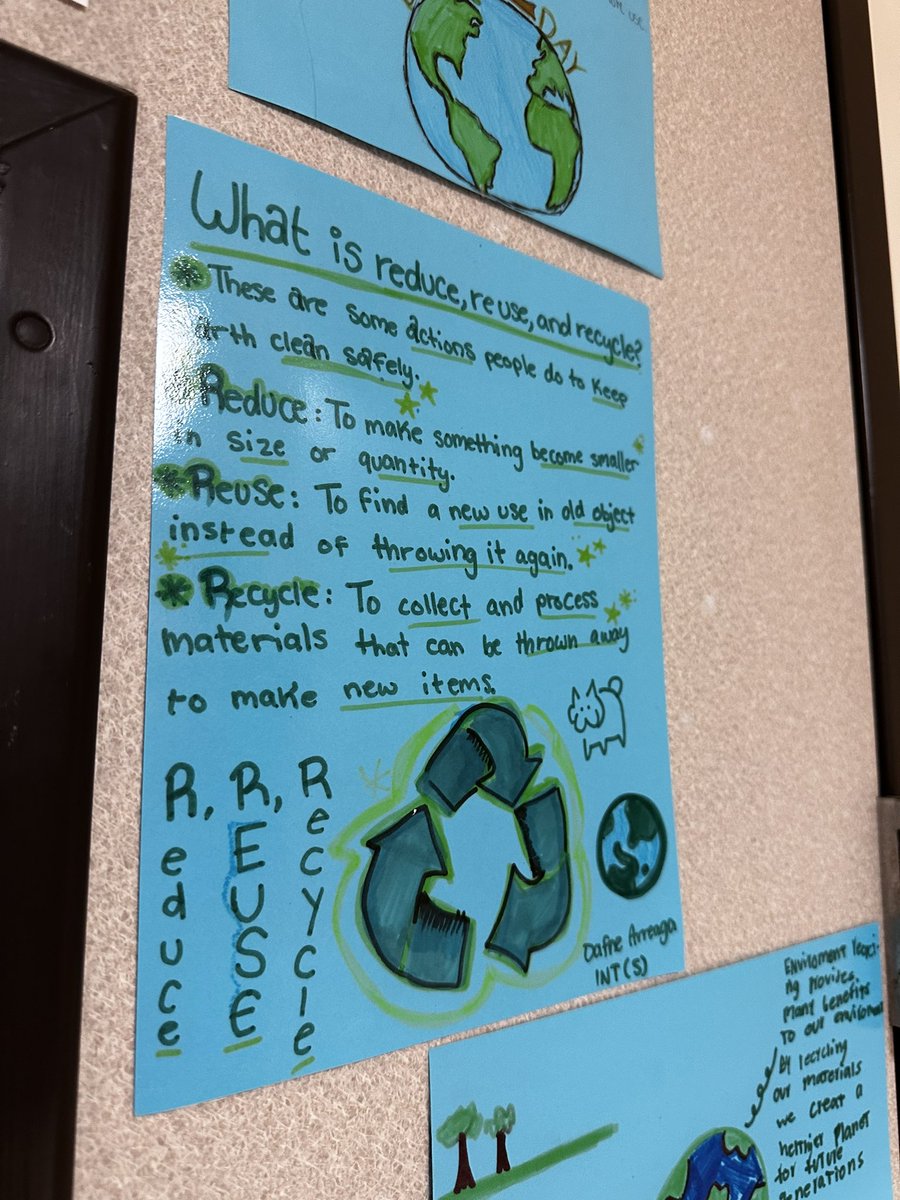 DAY
USE
What is reduce, reuse, and recycle?
* These are some actions people do to keep
arth clean safely.
Reduce: To make something become smaller
in size or quantity.
* Reuse: To find a new use in old object
instead of throwing it again.
* Recycle: To collect and process
materials that can be thrown away
to make new items.
R, R, R
educe
EUSE
ecycle
Dafne Arreaga
INT(S)
Enviroment
ng provides.
plant benefits
To our enviromen
By recycling
our materials
we creat a
helthier planet
for future
generations